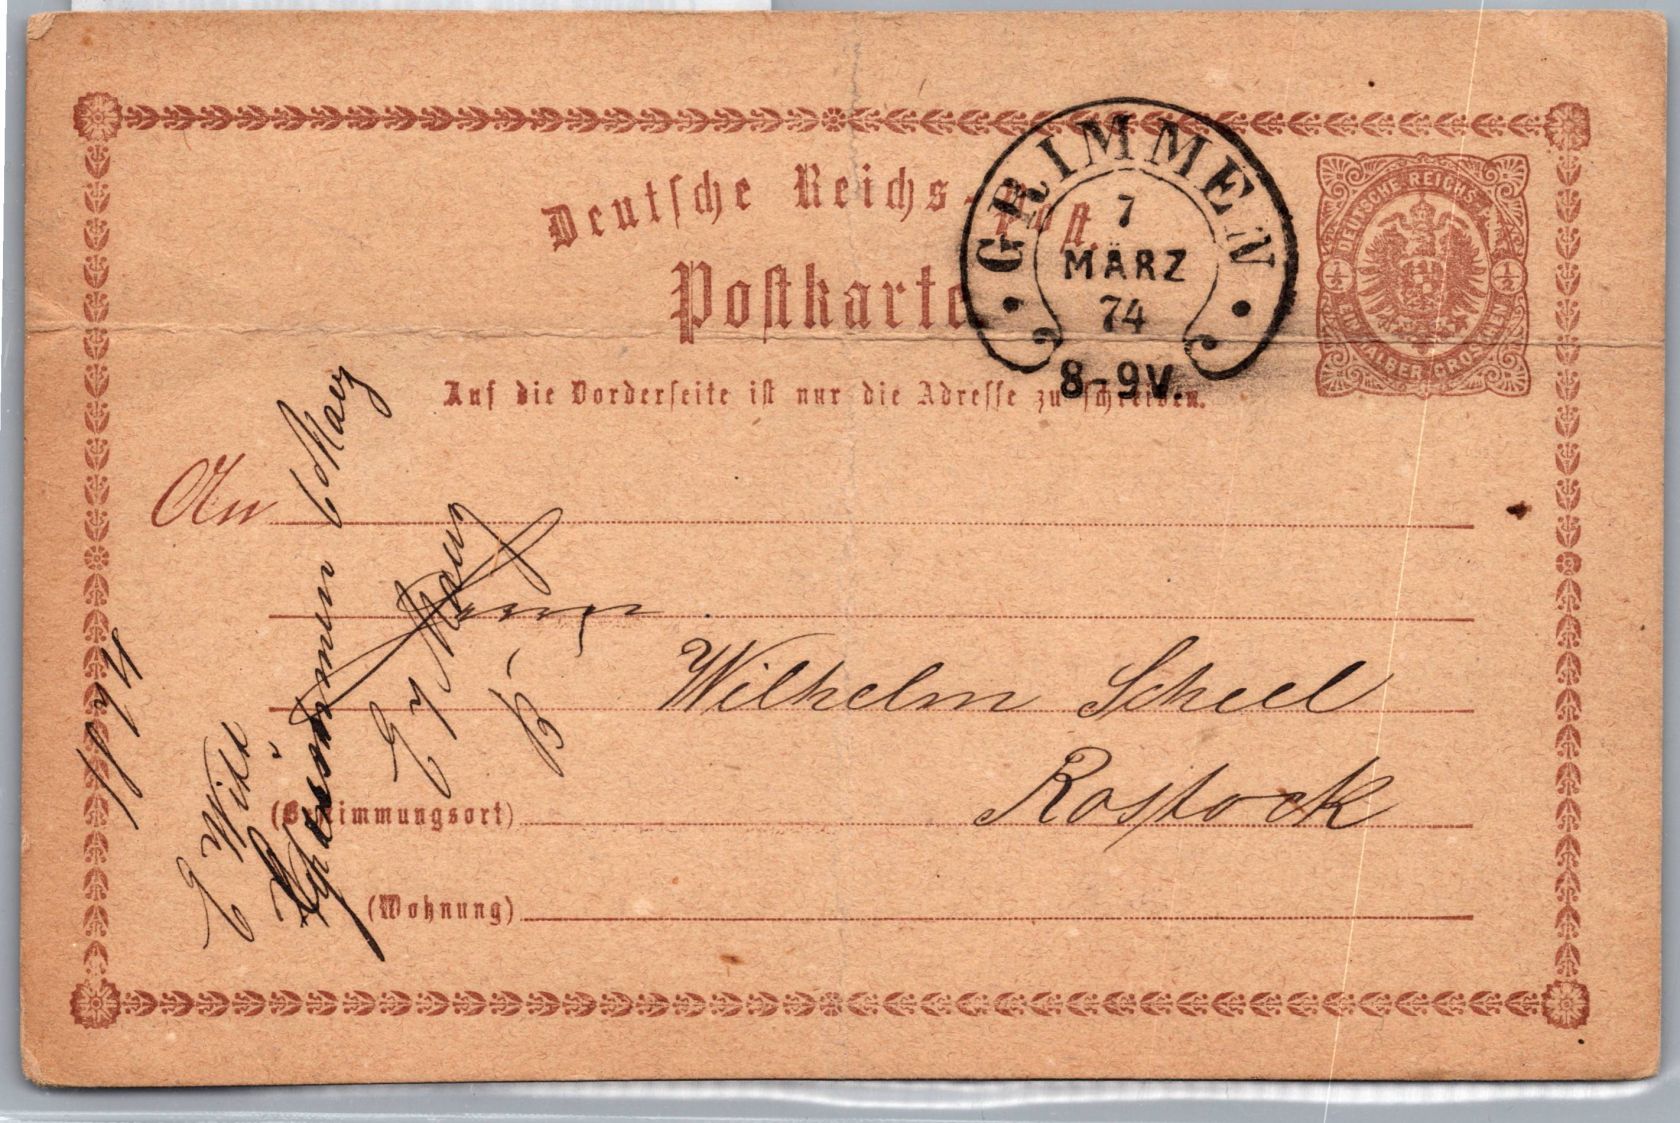 Deutsche Reichs-Post.
Postkarte
GRIMMEN
7
MÄRZ
74
8-9V.
DEUTSCHE REICHS-POST
½ ½
EIN HALBER GROSCHEN
Auf die Vorderseite ist nur die Adresse zu schreiben.
An
Herrn
Wilhelm Scheel
(Bestimmungsort) Rostock
(Wohnung)
1874
6 Maerz
E 7 Maerz